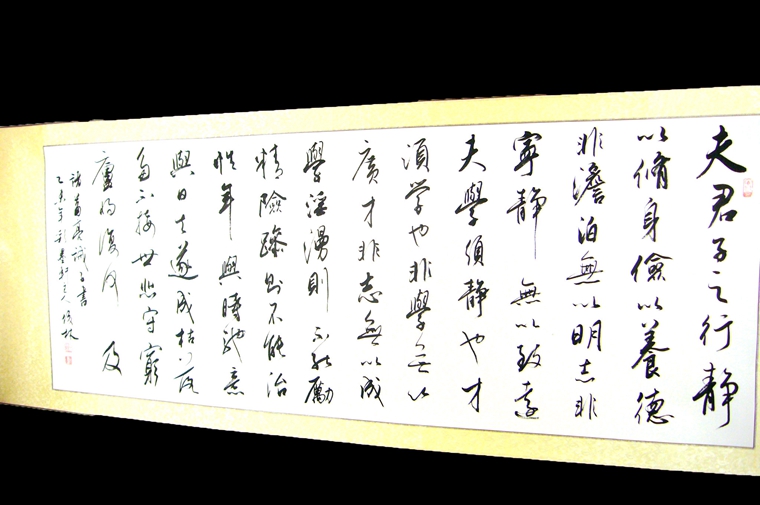 夫君子之行静
以脩身儉以養德
非澹泊無以明志非
寧静無以致遠
夫學須静也才
須学也非學无以
廣才非志無以成
學淫漫則不能勵
精險躁則不能治
性年與時馳意
與日去遂成枯落
多不接世悲守窮
廬将復何及
諸葛亮誡子書
乙未年